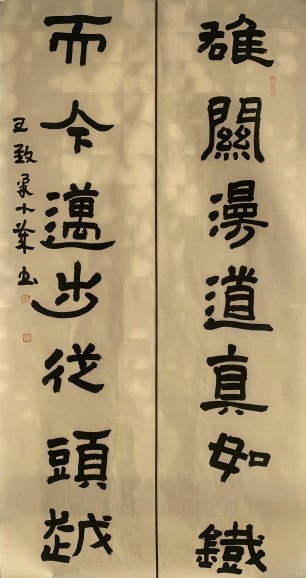 雄關漫道真如鐵
而今邁步從頭越
王致柔书